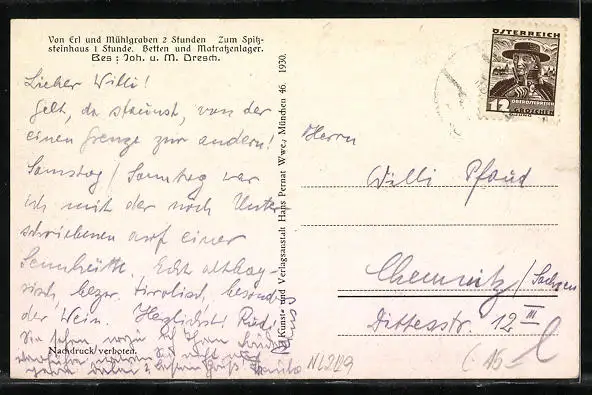 Von Erl und Mühlgraben 2 Stunden Zum Spitz-
steinhaus 1 Stunde. Betten und Matratzenlager.
Bes: Joh. u. M. Dresch.
Lieber Willi!
Gelt, da staunst, von der
einen Grenze zur andern!
Samstag / Sonntag war
ich mit der noch Unter-
schriebenen auf einer
Sennhütte. Echt altbay-
risch, bezw. tirolisch, besond.
der Wein. Herzlichst Rudi
Sie sehen, wozu
Nachdruck verboten.
Kunst- und Verlagsanstalt Hans Pernat Wwe., München 46. 1930.
ÖSTERREICH
OBERÖSTERREICH
12 GROSCHEN
Herrn
Willi Pfaud
Chemnitz / Sachsen
Dittesstr. 12 III